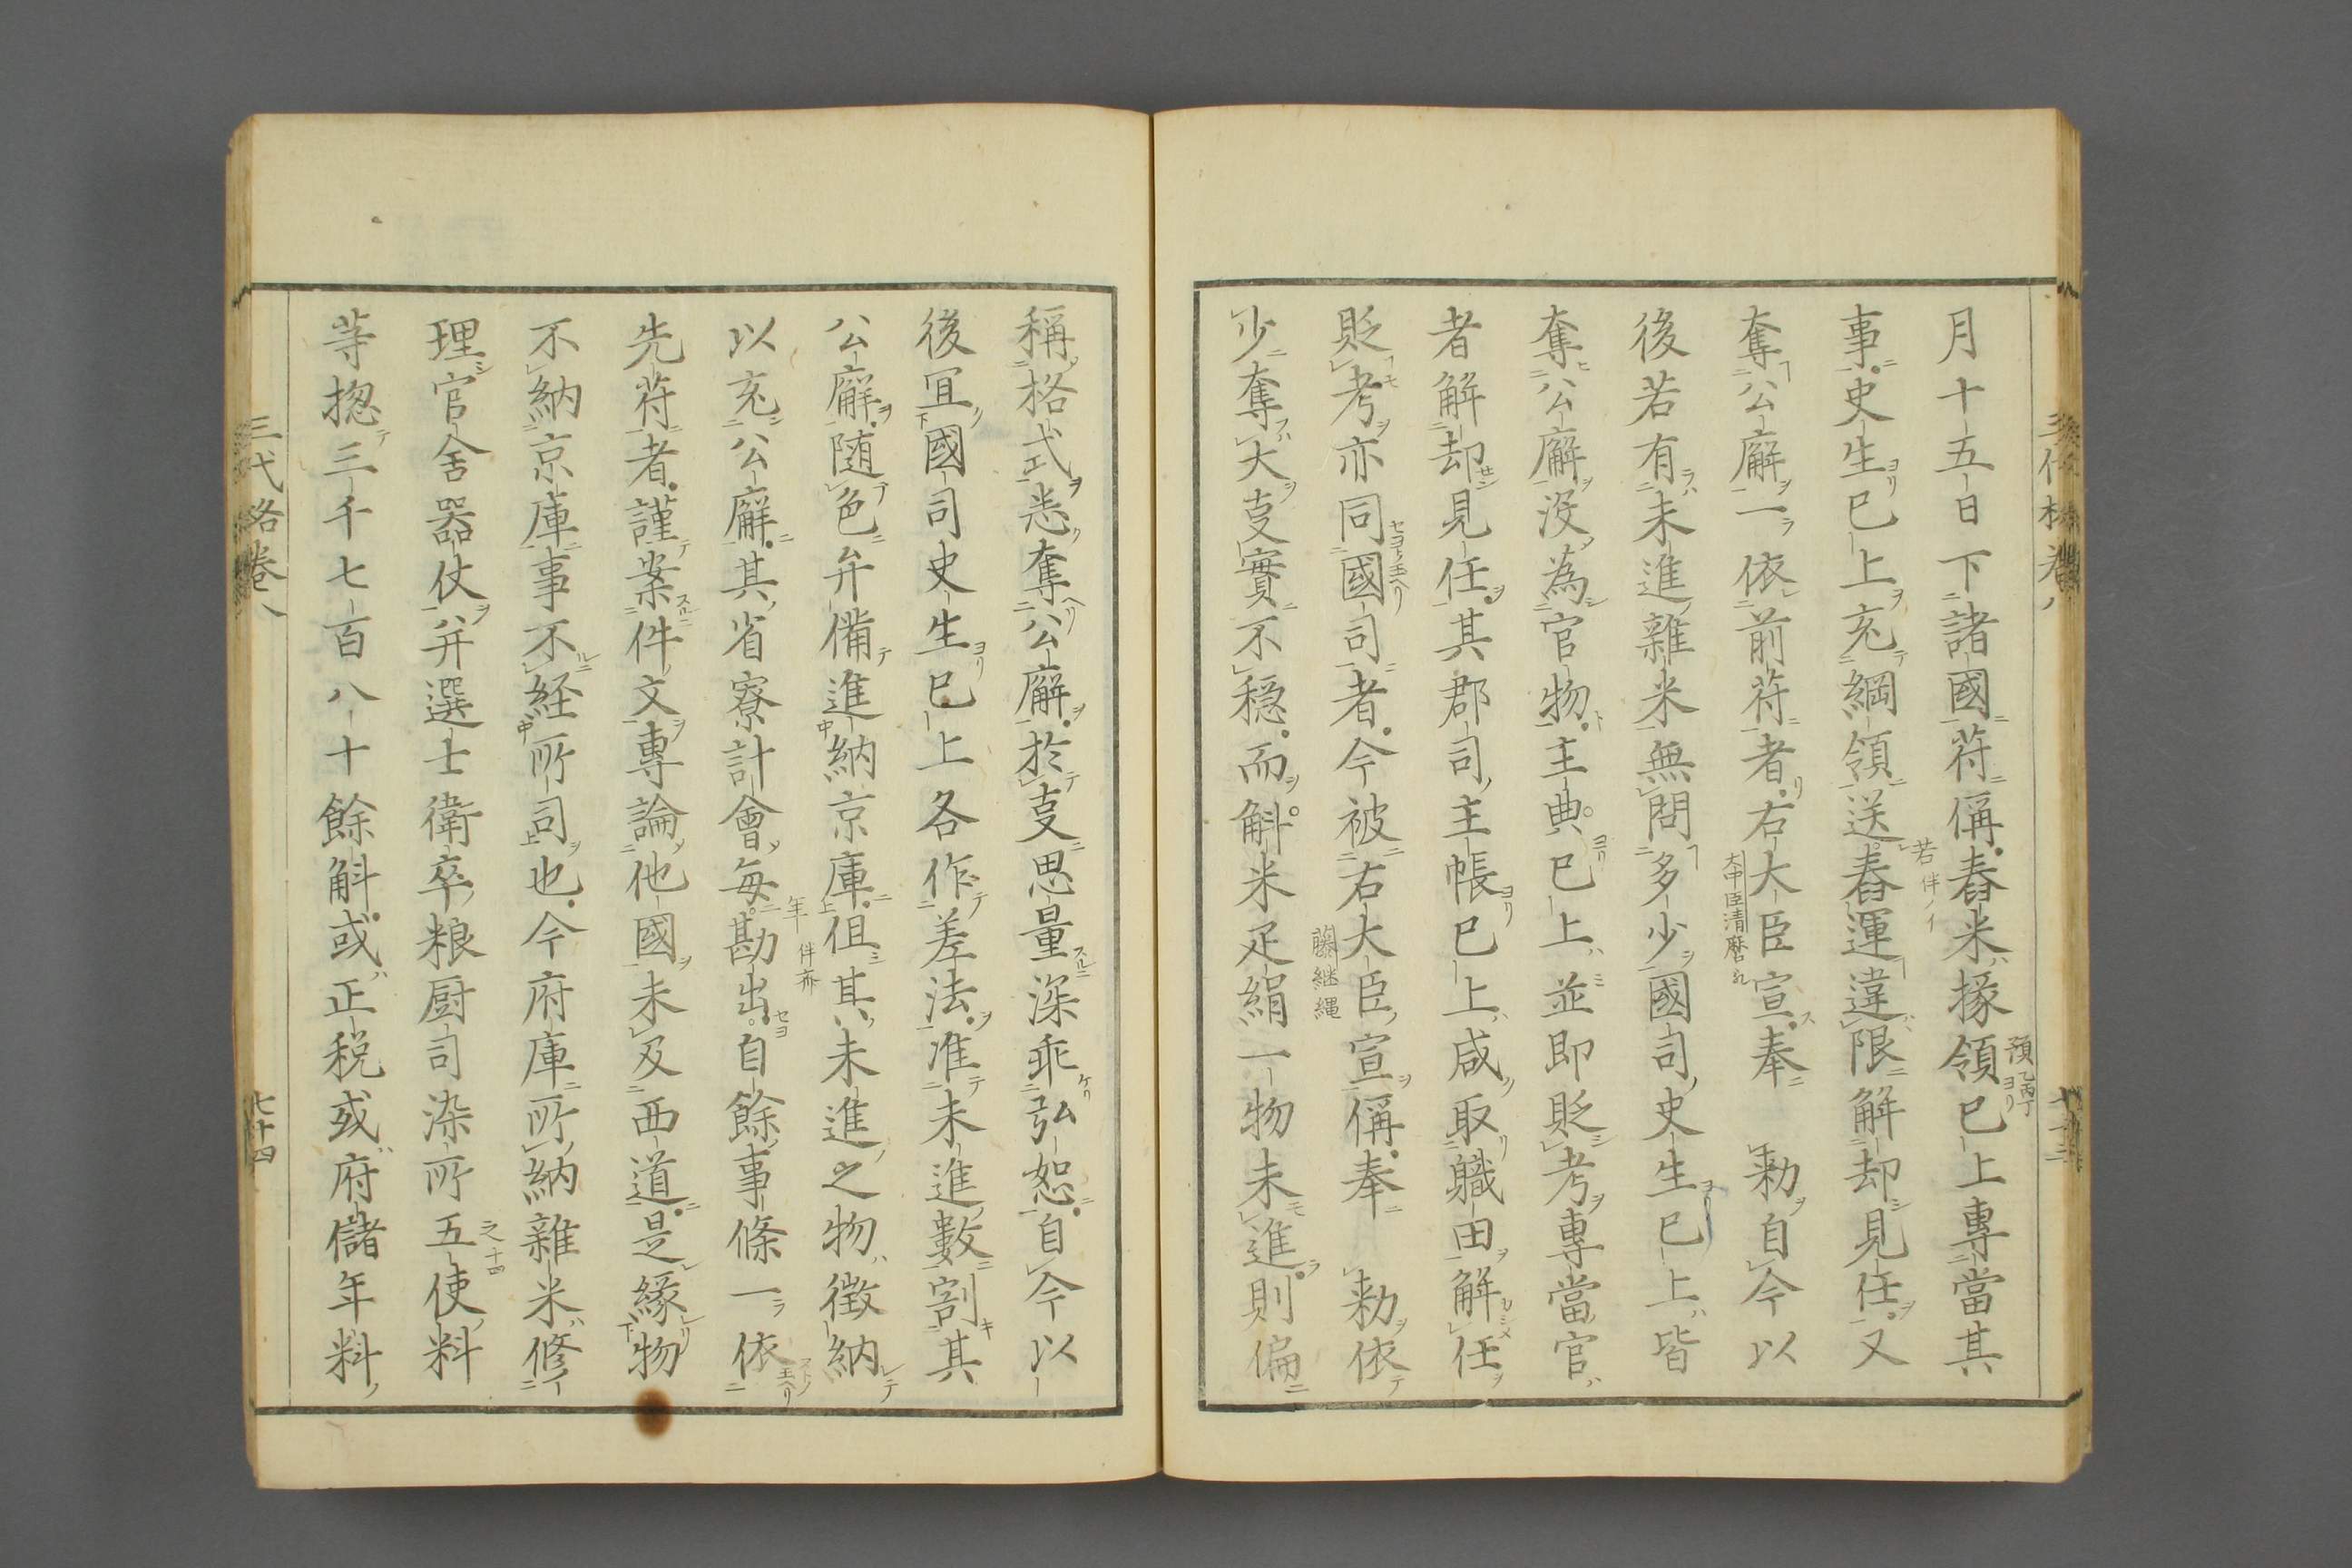 月十五日下諸國苻偁舂米掾領已上專當其
事史生已上充綱領送舂運違限解却見任又
奪公廨一依前苻者右大臣宣奉　勑自今以
後若有未進雜米無問多少國司史生已上皆
奪公廨没為官物主典已上並即貶考專當官
者解却見任其郡司主帳已上咸取職田解任
貶考亦同國司者今被右大臣宣偁奉　勑依
少奪大𡕥實不穏而斛米疋絹一物未進則偏
稱格式悉奪公廨於𡕥思量深乖弘恕自今以
後冝國司史生已上各作差法准未進數割其
公廨随色弁備進納京庫但其未進之物徴納
以充公廨其省寮計會毎勘出自餘事條一依
先苻者謹案件文專論他國未及西道是緣物
不納京庫事不経所司也今府庫所納雜米修
理官舎器仗并選士衛卒粮厨司染所五使料
等揔三千七百八十餘斛或正税或府儲年料
三代格卷八
七十四